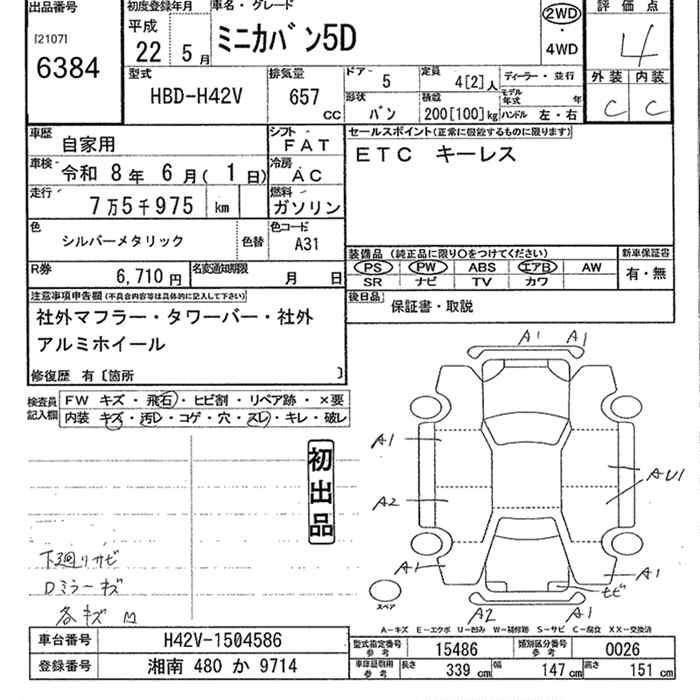 出品番号
[2107]
6384
初度登録年月
平成
22 5 月
車名・グレード
ミニカバン5D
2WD
・
4WD
評価点
4
外装 内装
C C
型式
HBD-H42V
排気量
657 CC
ドア 5
定員 4[2]人
ディーラー・並行
モデル年式 年
形状 バン
積載 200[100]kg
ハンドル 左・右
車歴 自家用
シフト FAT
車検 令和 8年 6月( 1日)
冷房 AC
走行 7万5千975 km
燃料 ガソリン
色 シルバーメタリック 色替
色コード A31
R券 6,710円
名変通知期限 月 日
セールスポイント(正常に機能するものに限ります)
ETC キーレス
装備品 (純正品に限り○をつけてください)
PS PW ABS エアB AW
SR ナビ TV カワ
新車保証書
有・無
後日品 保証書・取説
注意事項申告欄 (不具合内容等は具体的に記入して下さい)
社外マフラー・タワーバー・社外
アルミホイール
修復歴 有〔箇所 〕
検査員記入欄
FW キズ・飛石・ヒビ割・リペア跡・×要
内装 キズ・汚レ・コゲ・穴・スレ・キレ・破レ
初出品
下廻りサビ
Dミラーキズ
各キズ M
A1 A1
A1
A2
A1
AU1
A1
ヒビ
A2 A1
スペア
A-キズ E-エクボ U-凹み W-補修跡 S-サビ C-腐食 XX-交換済
車台番号 H42V-1504586
登録番号 湘南 480 か 9714
型式指定番号 参考 15486
類別区分番号 参考 0026
車庫証明用 参考 長さ 339 cm 幅 147 cm 高さ 151 cm